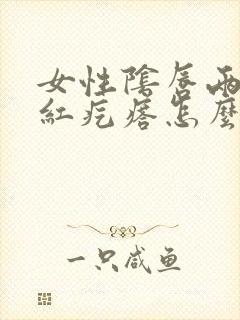 女性陰唇兩
紅疙瘩怎麼
一只咸鱼